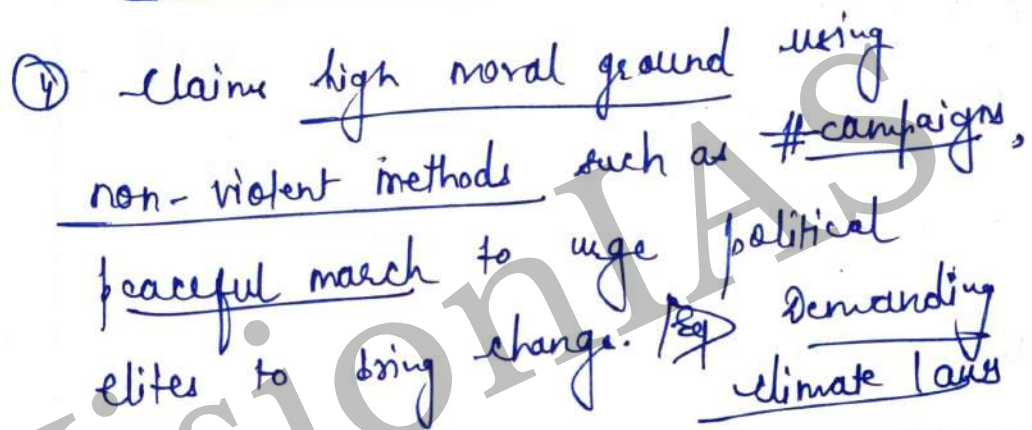 ④ Claims high moral ground using
non-violent methods such as #campaigns,
peaceful march to urge political
elites to bring change. Eg Demanding
climate laws
VisionIAS